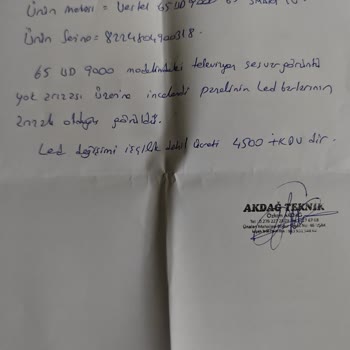 Ürün modeli = Vestel 65 UD 9000 65 smart TV.
Ürün Serino = 8224804900318.
65 UD 9000 modelindeki televizyon ses var görüntü
yok arızası üzerine incelendi panelinin Led barlarının
arızalı olduğu görüldü.
Led değişimi işçilik dahil ücreti 4500 TL+KDV dir.
AKDAĞ TEKNİK